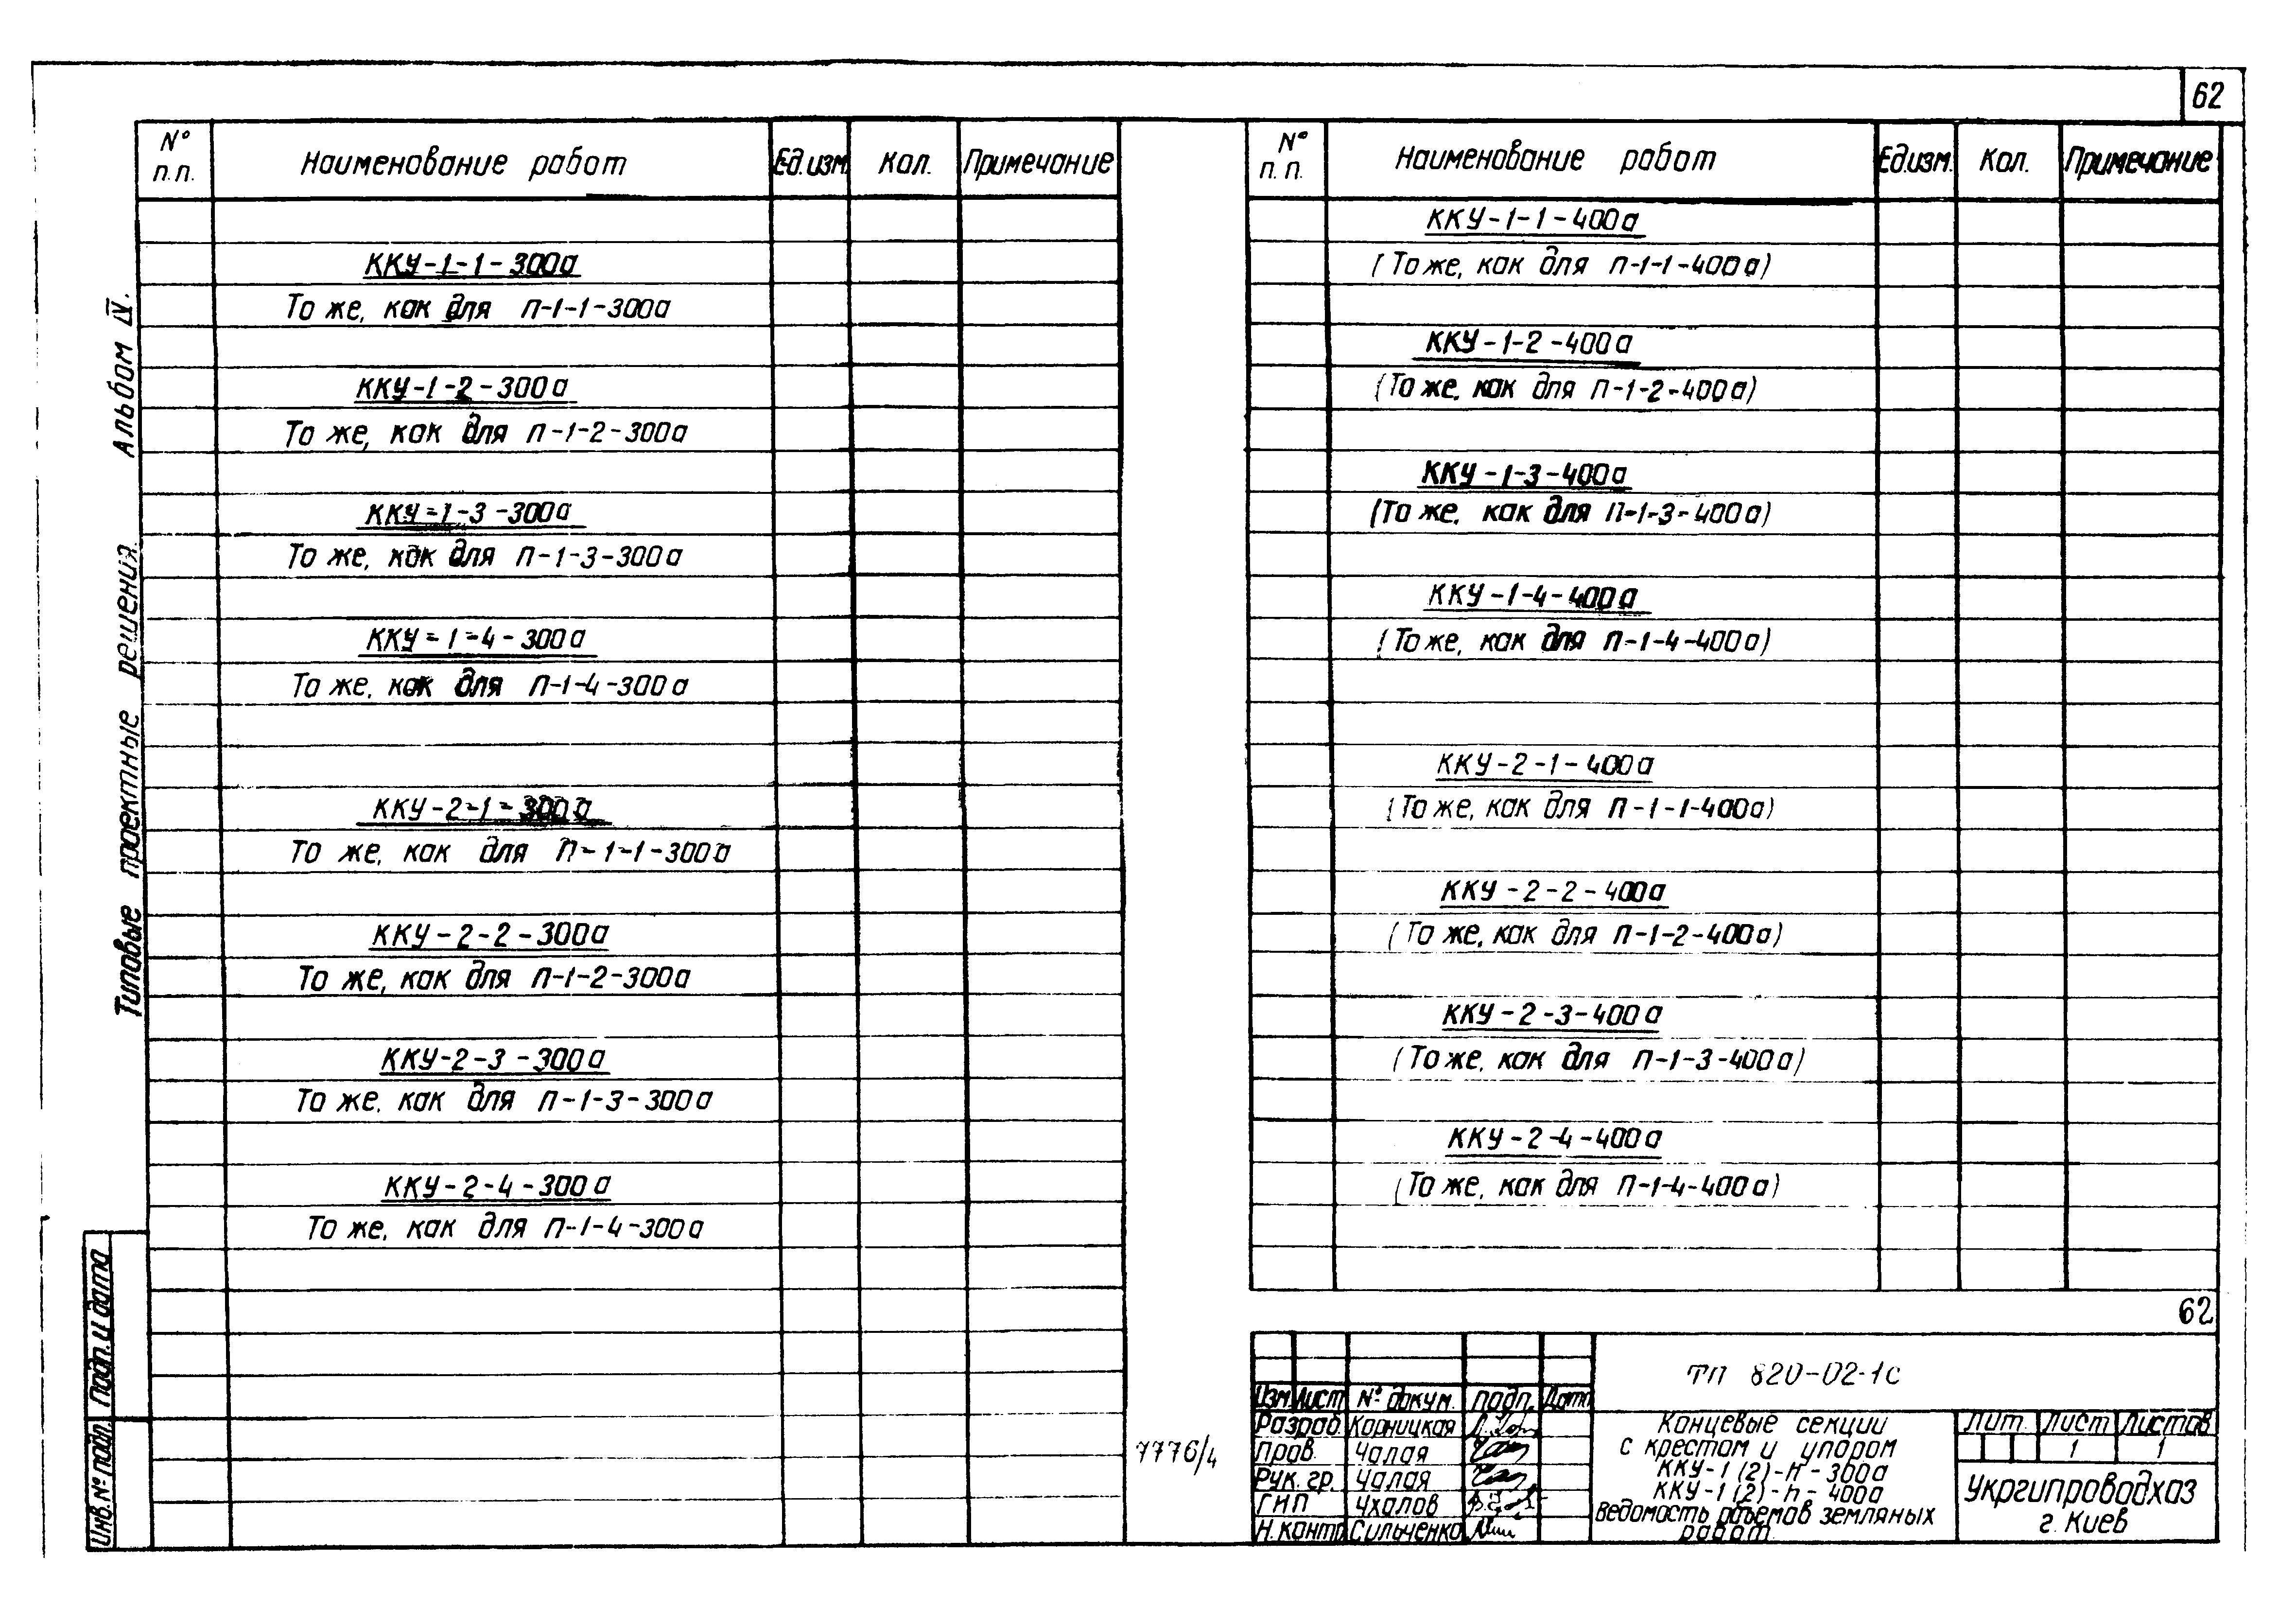 62
Типовые проектные решения. Альбом IV.
№ п.п. Наименование работ Ед.изм. Кол. Примечание
ККУ-1-1-300а
То же, как для П-1-1-300а
ККУ-1-2-300а
То же, как для П-1-2-300а
ККУ-1-3-300а
То же, как для П-1-3-300а
ККУ-1-4-300а
То же, как для П-1-4-300а
ККУ-2-1-300а
То же, как для П-1-1-300а
ККУ-2-2-300а
То же, как для П-1-2-300а
ККУ-2-3-300а
То же, как для П-1-3-300а
ККУ-2-4-300а
То же, как для П-1-4-300а
№ п.п. Наименование работ Ед.изм. Кол. Примечание
ККУ-1-1-400а
(То же, как для П-1-1-400а)
ККУ-1-2-400а
(То же, как для П-1-2-400а)
ККУ-1-3-400а
(То же, как для П-1-3-400а)
ККУ-1-4-400а
(То же, как для П-1-4-400а)
ККУ-2-1-400а
(То же, как для П-1-1-400а)
ККУ-2-2-400а
(То же, как для П-1-2-400а)
ККУ-2-3-400а
(То же, как для П-1-3-400а)
ККУ-2-4-400а
(То же, как для П-1-4-400а)
62
Инв.№ подл. Подп. и дата
7776/4
ТП 820-02-1с
Изм. Лист № докум. Подп. Дата
Разраб. Корницкая
Пров. Чалая
Рук. гр. Чалая
ГИП Чхалов
Н.контр. Сильченко
Концевые секции
с крестом и упором
ККУ-1(2)-h-300а
ККУ-1(2)-h-400а
Ведомость объемов земляных
работ.
Лит. Лист Листов
1 1
Укргипроводхоз
г. Киев